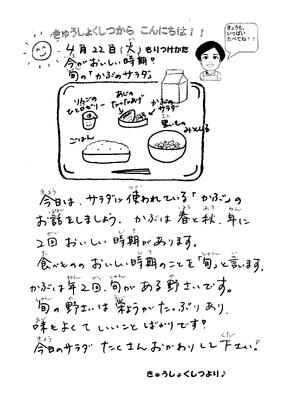 きゅうしょくしつから こんにちは！！
きょうも、
いっぱい
たべてね！！
4月22日(火) もりつけかた
今がおいしい時期？
旬の「かぶのサラダ」
りんごの
ひとロゼリー
あじの
たつたあげ
かぶの
サラダ
ごはん
みそしる
今日は、サラダに使われている「かぶ」の
お話をしましょう。かぶは春と秋、年に
2回おいしい時期があります。
食べもののおいしい時期のことを「旬」と言います。
かぶは年2回、旬がある野さいです。
旬の野さいは栄ようがたっぷりあり、
味もよくていいことばかりです？
今日のサラダ たくさんおかわりして下さい？
きゅうしょくしつより♪